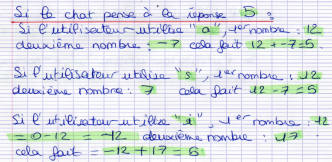 Si le chat pense à la réponse 5 :
Si l'utilisateur utilise "a", 1er nombre : 12
deuxième nombre : -7 cela fait 12 + -7 = 5.
Si l'utilisateur utilise "s", 1er nombre : 12
deuxième nombre : 7 cela fait 12 - 7 = 5
Si l'utilisateur utilise 1er nombre : 12
= 0 - 12 = -12 deuxième nombre : 17
cela fait = -12 + 17 = 5